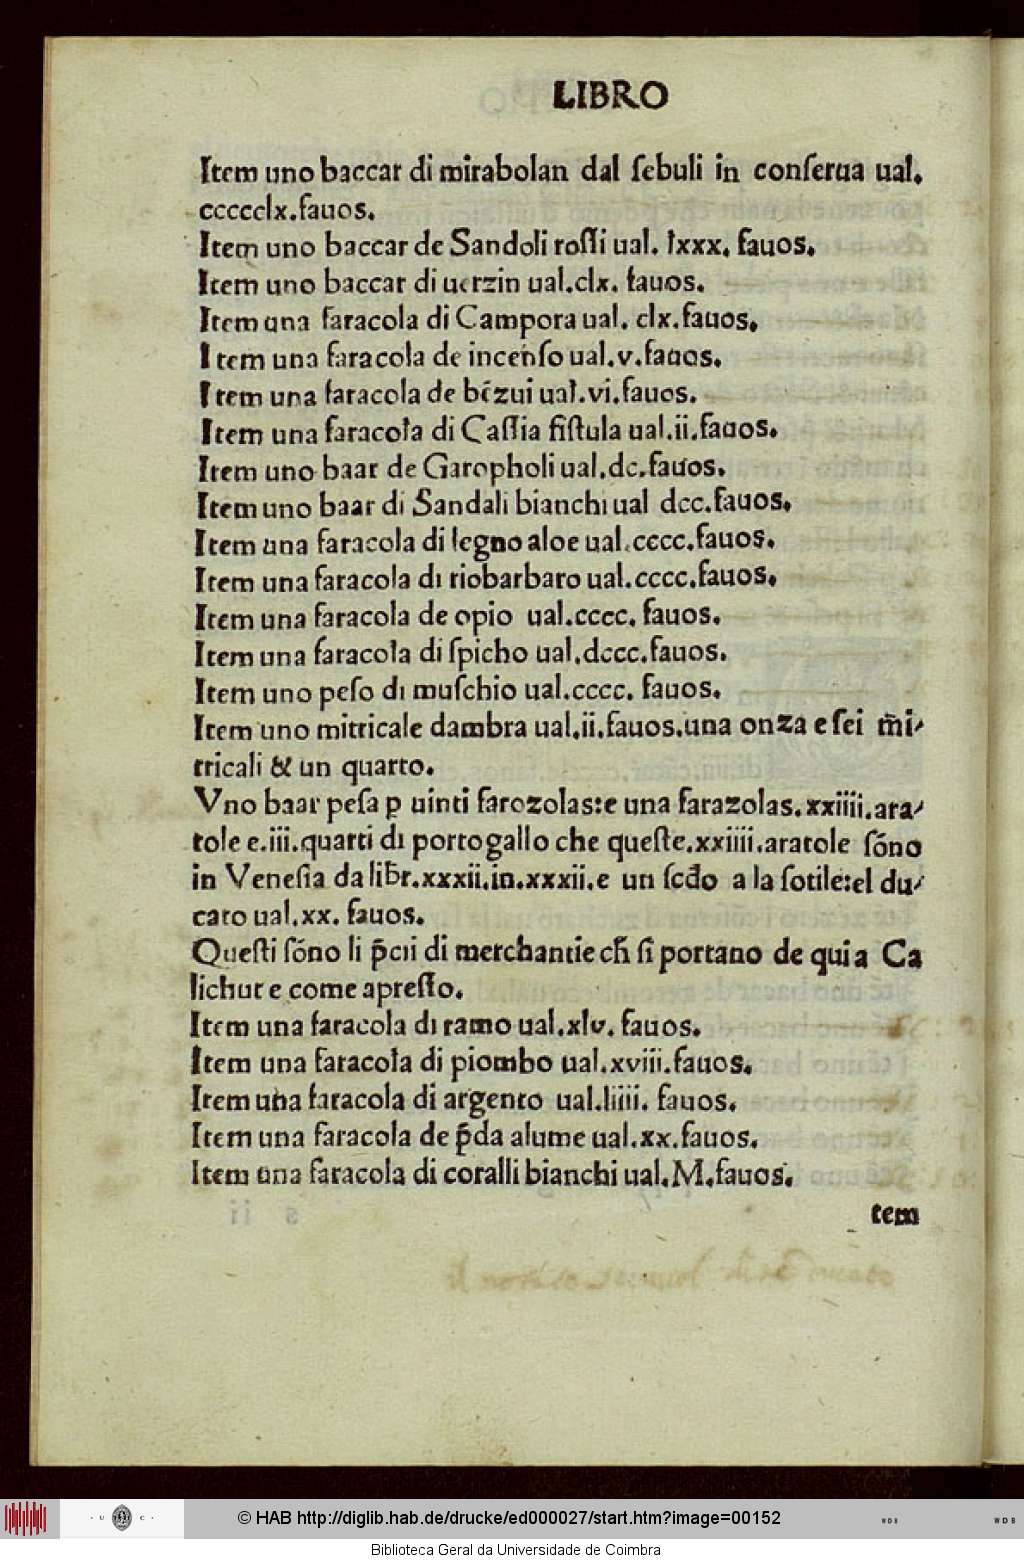 LIBRO
Item uno baccar di mirabolan dal ſebuli in conſerua ual.
ccccclx.fauos.
Item uno baccar de Sandoli roſſi ual. lxxx. fauos.
Item uno baccar di uerzin ual.clx. fauos.
Item una faracola di Campora ual. clx.fauos.
Item una faracola de incenſo ual.v.fauos.
Item una faracola de bēzui ual.vi.fauos.
Item una faracola di Caſſia fiſtula ual.ii.fauos.
Item uno baar de Garopholi ual.dc.fauos.
Item uno baar di Sandali bianchi ual dcc.fauos.
Item una faracola di legno aloe ual.cccc.fauos.
Item una faracola di riobarbaro ual.cccc.fauos.
Item una faracola de opio ual.cccc. fauos.
Item una faracola di ſpicho ual.dccc.fauos.
Item uno peſo di muſchio ual.cccc. fauos.
Item uno mitricale dambra ual.ii.fauos.una onza e ſei m̄i-
tricali & un quarto.
Vno baar peſa p uinti farozolas:e una farazolas.xxiiii.ara-
tole e.iii.quarti di portogallo che queſte.xxiiii.aratole ſōno
in Veneſia da lib̄r.xxxii.in.xxxii.e un ſcd̄o a la ſotile:el du-
cato ual.xx. fauos.
Queſti ſōno li p̄cii di merchantie ch̄ ſi portano de qui a Ca
lichut e come apreſto.
Item una faracola di ramo ual.xlv. fauos.
Item una faracola di piombo ual.xviii.fauos.
Item una faracola di argento ual.liiii. fauos.
Item una faracola de p̄da alume ual.xx.fauos.
Item una faracola di coralli bianchi ual.M.fauos.
tem
© HAB http://diglib.hab.de/drucke/ed000027/start.htm?image=00152
Biblioteca Geral da Universidade de Coimbra